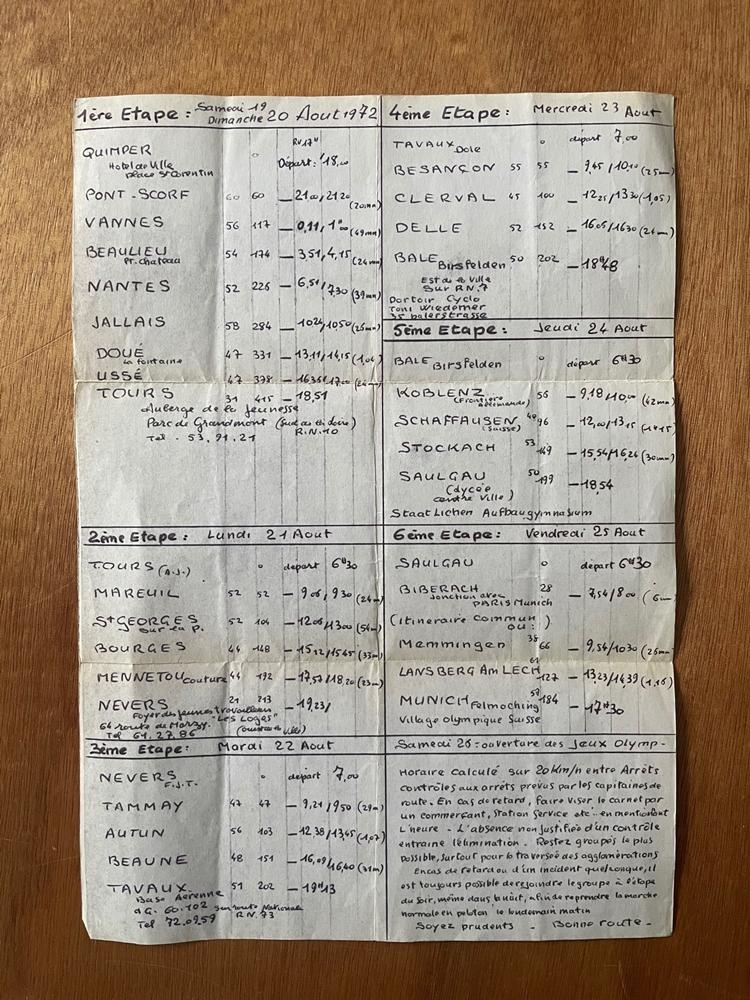 1ère Etape : Samedi 19
Dimanche 20 Aout 1972
QUIMPER 0 RV 17H
Hotel de Ville Départ : 18,00
place St Corentin
PONT-SCORF 60 60 — 21,00/21,20 (20mn)
VANNES 56 117 — 0,11/1H00 (49mn)
BEAULIEU 54 174 — 3,51/4,15 (24mn)
Pt. chateau
NANTES 52 226 — 6,51/7,30 (39mn)
JALLAIS 58 284 — 10,24/10,50 (26mn)
DOUÉ 47 331 — 13,11/14,15 (1,04)
la fontaine
USSÉ 47 378 — 16,36/17,00 (24mn)
TOURS 31 415 — 18,51
Auberge de la Jeunesse
Parc de Grandmont (Sud
R.N.10
Tel. 53.91.21
2ème Etape : Lundi 21 Aout
TOURS (A.J.) 0 départ 6H30
MAREUIL 52 52 — 9,06/9,30 (24mn)
St GEORGES 52 104 — 12,06/13,00 (54mn)
sur la P.
BOURGES 44 148 — 15,12/15,45 (33mn)
MENNETOU couture 44 192 — 17,57/18,20 (23mn)
NEVERS 21 213 — 19,23/
Foyer des jeunes travailleurs
"Les Loges"
64 route de Marzy.
Tel 61.27.86
3ème Etape : Mardi 22 Aout
NEVERS 0 départ 7,00
F.J.T.
TAMMAY 47 47 — 9,21/9,50 (29mn)
AUTUN 56 103 — 12,38/13,45 (1,07)
BEAUNE 48 151 — 16,09/16,40 (31mn)
TAVAUX 51 202 — 19H13
Base Aérienne
à G. 60.102 sur route Nationale
Tel 72.09.59 R.N.73
4ème Etape : Mercredi 23 Aout
TAVAUX Dole 0 départ 7,00
BESANÇON 55 55 — 9,45/10,10 (25mn)
CLERVAL 45 100 — 12,25/13,30 (1,05)
DELLE 52 152 — 16,06/16,30 (24mn)
BALE Birsfelden 50 202 — 18H48
Est de la Ville
Sur R.N.7
Dortoir Cyclo
Toni Wiedemer
35 balerstrasse
5ème Etape : Jeudi 24 Aout
BALE Birsfelden 0 départ 6H30
KOBLENZ 56 — 9,18/10,00 (42mn)
(Frontiere allemande)
SCHAFFAUSEN 40 96 — 12,00/13,15 (1H15)
(Suisse)
STOCKACH 53 149 — 15,54/16,24 (30mn)
SAULGAU 50 199 — 18,54
(Lycée
centre Ville)
Staat Lichen Aufbaugymnasium
6ème Etape : Vendredi 25 Aout
SAULGAU 0 départ 6H30
BIBERACH 28 — 7,54/8,00 (6mn)
Jonction avec
PARIS Munich
(itineraire commun
ou : )
Memmingen 38 66 — 9,54/10,30 (26mn)
LANSBERG AM LECH 61 127 — 13,23/14,39 (1,16)
MUNICH Felmoching 57 184 — 17H30
Village olympique Suisse
Samedi 26 : ouverture des Jeux Olymp.
Horaire calculé sur 20 Km/h entre Arrêts
contrôles aux arrêts prévus par les capitaines de
route. En cas de retard, faire viser le carnet par
un commerçant, station Service etc... en mentionant
L'heure - L'absence non justifiée d'un contrôle
entraine l'élimination. Restez groupés le plus
possible, surtout pour la traversée des agglomérations
En cas de retard ou d'un incident quelconque, il
est toujours possible de rejoindre le groupe à l'étape
du soir, même dans la nuit, afin de reprendre la marche
normale en peloton le lendemain matin
Soyez prudents - Bonne route -